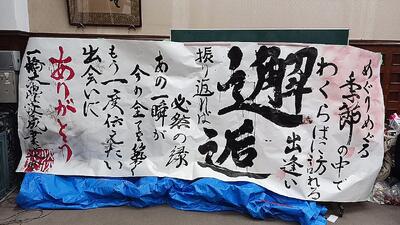 めぐりめぐる
季節の中で
わくらばに訪れる
出逢い
邂逅
振り返れば
必然の縁
あの一瞬が
今の全てを築く
もう一度伝えたい
出会いに
ありがとう